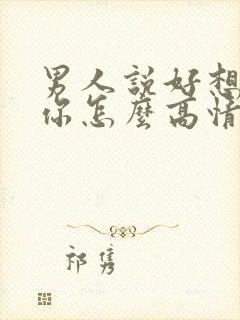 男人說好想
你怎麼高情
祁隽